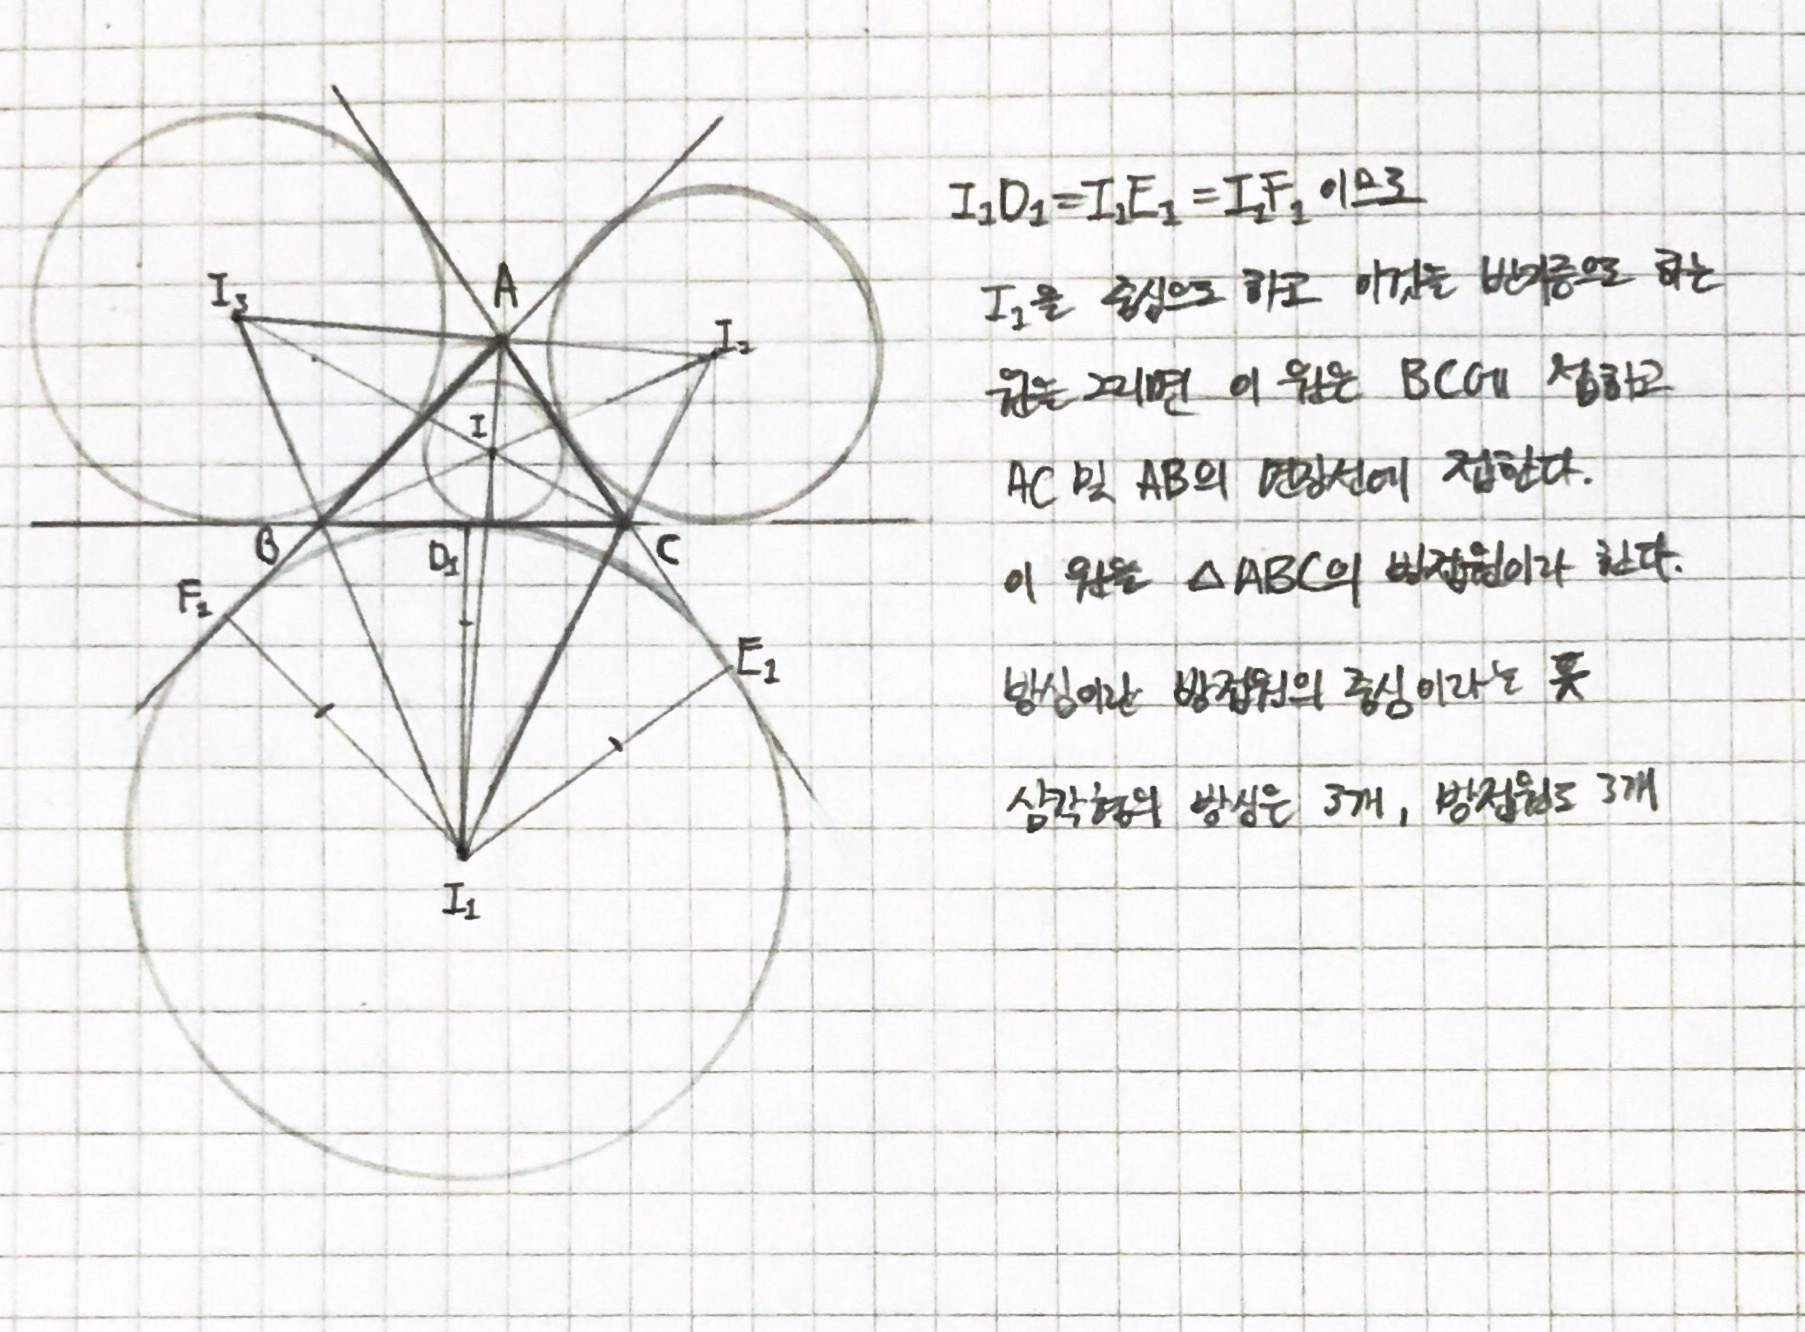 I₃
A
I₂
I
B
D₁
C
F₁
E₁
I₁
I₁D₁=I₁E₁=I₁F₁ 이므로
I₁을 중심으로 하고 이것을 반지름으로 하는
원을 그리면 이 원은 BC에 접하고
AC 및 AB의 연장선에 접한다.
이 원을 △ABC의 방접원이라 한다.
방심이란 방접원의 중심이라는 뜻
삼각형의 방심은 3개, 방접원도 3개